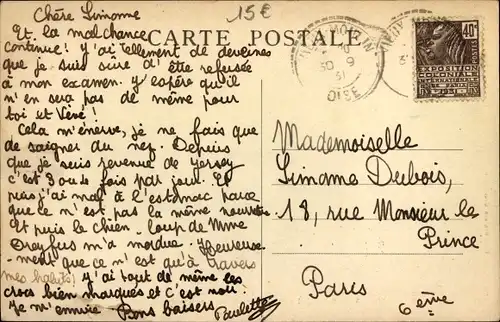 Chère Simonne
15€
Et la malchance
continue ! J'ai tellement de deveines
que je suis sûre d'être refusée
à mon examen. J'espère qu'il
n'en sera pas de même pour
toi et Vévé !
Cela m'énerve, je ne fais que
de saigner du nez. Depuis
que je suis revenue de Jersey
c'est 3 ou 4 fois par jour. Et
puis j'ai mal à l'estomac parce
que ce n'est pas la même nourriture
Et puis le chien-loup de Mme
Dreyfus m'a mordue. Heureuse-
ment que ce n'est qu'à travers
mes habits ; j'ai tout de même les
crocs bien marqués et c'est noir.
Je m'ennuie Bons baisers
Paulette
CARTE POSTALE
30 9
31
40c
EXPOSITION
COLONIALE
INTERNATIONALE
PARIS
Mademoiselle
Simone Dubois,
18, rue Monsieur le
Prince
Paris
6ème